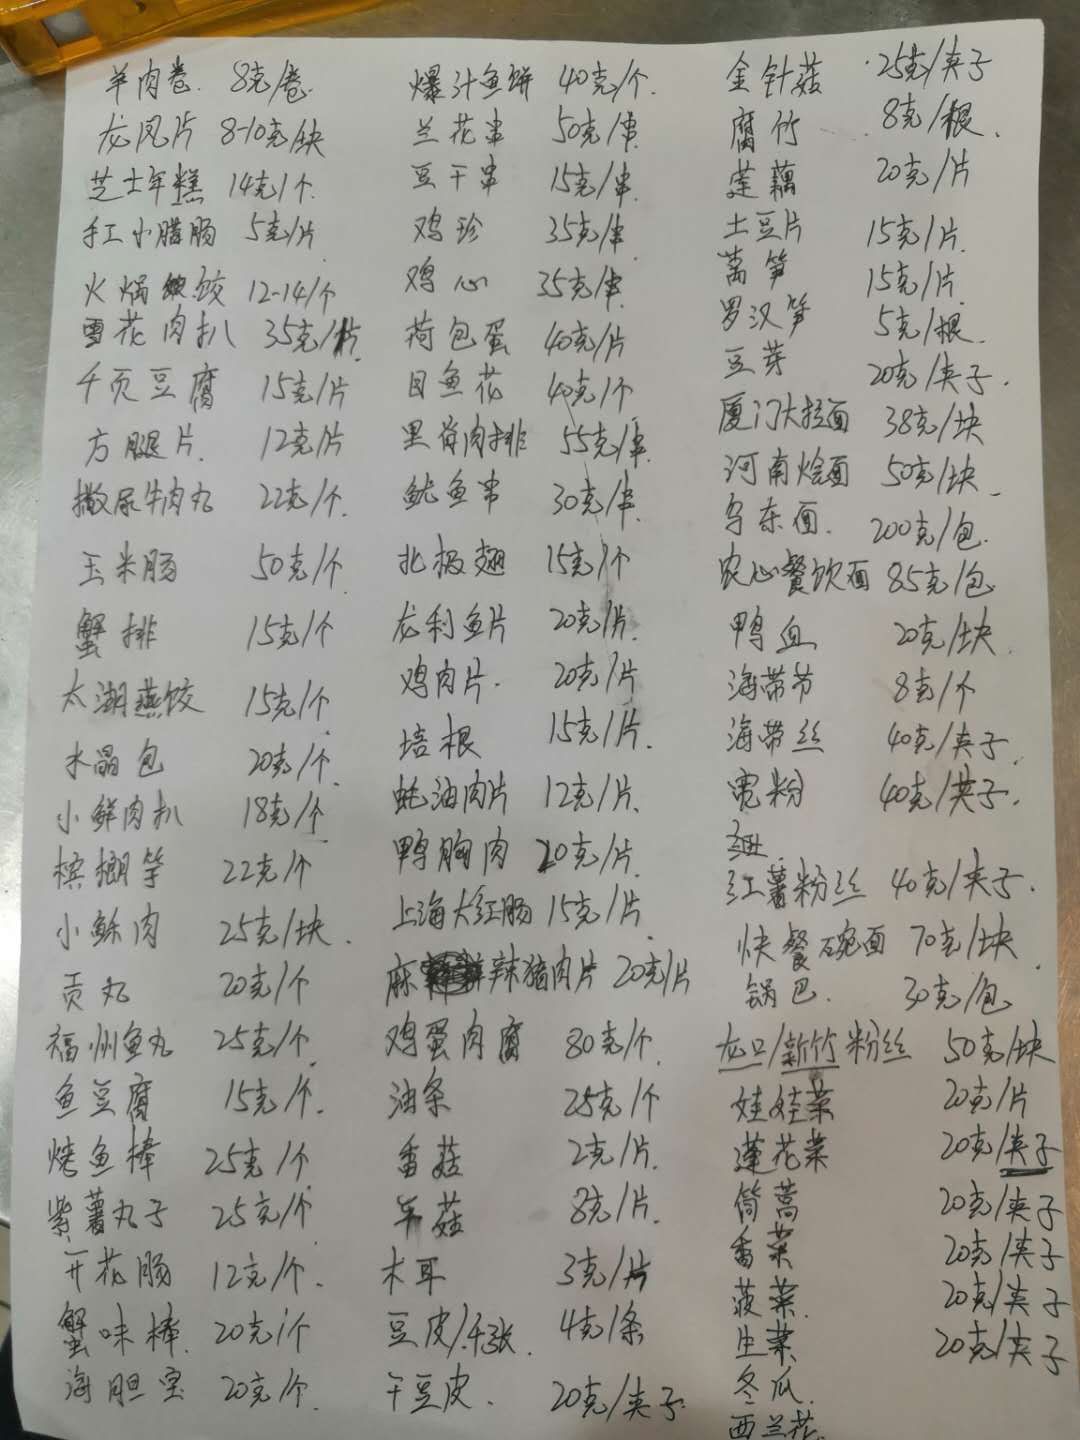 羊肉卷 8克/卷
龙凤片 8-10克/块
芝士年糕 14克/个
手工小腊肠 5克/片
火锅饺 12-14/个
雪花肉扒 35克/片
千页豆腐 15克/片
方腿片 12克/片
撒尿牛肉丸 22克/个
玉米肠 50克/个
蟹排 15克/个
太湖燕饺 15克/个
水晶包 20克/个
小鲜肉扒 18克/个
槟榔芋 22克/个
小酥肉 25克/块
贡丸 20克/个
福州鱼丸 25克/个
鱼豆腐 15克/个
烤鱼棒 25克/个
紫薯丸子 25克/个
开花肠 12克/个
蟹味棒 20克/个
海胆宝 20克/个
爆汁鱼饼 40克/个
兰花串 50克/串
豆干串 15克/串
鸡珍 35克/串
鸡心 35克/串
荷包蛋 40克/片
目鱼花 40克/个
里脊肉排 55克/串
鱿鱼串 30克/串
北极翅 15克/个
龙利鱼片 20克/片
鸡肉片 20克/片
培根 15克/片
蚝油肉片 12克/片
鸭胸肉 20克/片
上海大红肠 15克/片
麻辣猪肉片 20克/片
鸡蛋肉腐 80克/个
油条 25克/个
香菇 2克/片
平菇 8克/片
木耳 3克/片
豆皮/千张 4克/条
干豆皮 20克/夹子
金针菇 25克/夹子
腐竹 8克/根
莲藕 20克/片
土豆片 15克/片
莴笋 15克/片
罗汉笋 5克/根
豆芽 20克/夹子
厦门大拉面 38克/块
河南烩面 50克/块
乌东面 200克/包
农心餐饮面 85克/包
鸭血 20克/块
海带节 8克/个
海带丝 40克/夹子
宽粉 40克/夹子
红薯粉丝 40克/夹子
快餐碗面 70克/块
锅巴 30克/包
龙口/新竹粉丝 50克/块
娃娃菜 20克/片
蓬花菜 20克/夹子
筒蒿 20克/夹子
香菜 20克/夹子
菠菜 20克/夹子
生菜 20克/夹子
冬瓜
西兰花